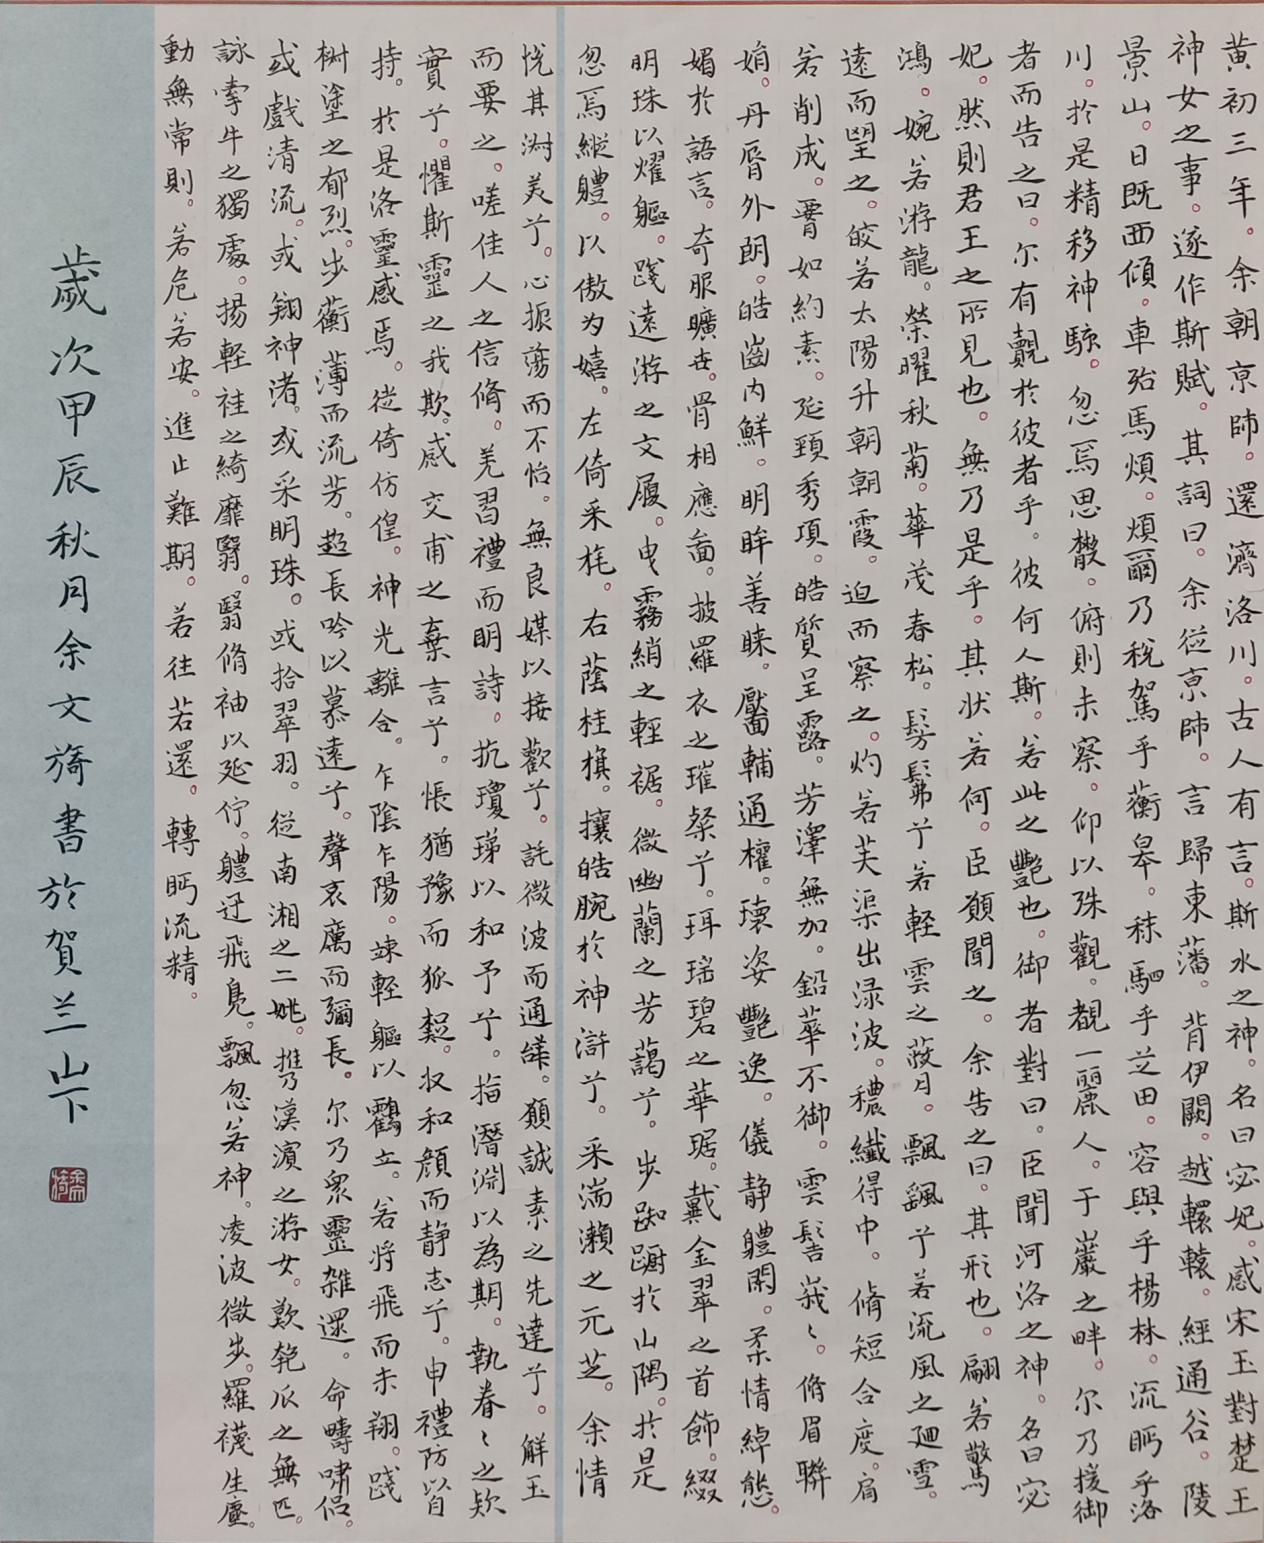 黄初三年。余朝京師。還濟洛川。古人有言。斯水之神。名曰宓妃。感宋玉對楚王
神女之事。遂作斯賦。其詞曰。余從京師。言歸東藩。背伊闕。越轘轅。經通谷。陵
景山。日既西傾。車殆馬煩。煩爾乃稅駕乎蘅皋。秣駟乎芝田。容與乎楊林。流眄乎洛
川。於是精移神駭。忽焉思散。俯則未察。仰以殊觀。覩一麗人。于巖之畔。尔乃援御
者而告之曰。尔有覿於彼者乎。彼何人斯。若此之艷也。御者對曰。臣聞河洛之神。名曰宓
妃。然則君王之所見也。無乃是乎。其状若何。臣願聞之。余告之曰。其形也。翩若驚
鴻。婉若游龍。榮曜秋菊。華茂春松。髣髴兮若輕雲之蔽月。飄飖兮若流風之廻雪。
遠而望之。皎若太陽升朝朝霞。迫而察之。灼若芙渠出渌波。穠纖得中。脩短合度。肩
若削成。署如約素。延頸秀項。皓質呈露。芳澤無加。鉛華不御。雲髻峩〻。脩眉聯
娟。丹脣外朗。皓齒内鮮。明眸善睐。靨輔通權。瓌姿艷逸。儀静體閑。柔情綽態。
媚於語言。奇服曠世。骨相應圖。披羅衣之璀粲兮。珥瑶碧之華琚。戴金翠之首飾。綴
明珠以燿軀。踐遠游之文履。曳霧綃之輕裾。微幽蘭之芳藹兮。步踟躕於山隅。於是
忽焉縱體。以傲为嬉。左倚采旄。右蔭桂旗。攘皓腕於神滸兮。采湍瀨之元芝。余情
悦其淑美兮。心振蕩而不怡。無良媒以接歡兮。託微波而通辭。願誠素之先達兮。解玉
而要之。嗟佳人之信脩。羌習禮而明詩。抗瓊珶以和予兮。指潛淵以為期。執眷〻之款
實兮。懼斯靈之我欺。感交甫之棄言兮。悵猶豫而狐疑。収和顏而静志兮。申禮防以自
持。於是洛靈感焉。徙倚仿偟。神光離合。乍陰乍陽。竦輕軀以鶴立。若將飛而未翔。踐
樹塗之郁烈。步蘅薄而流芳。超長吟以慕遠兮。聲哀厲而彌長。尔乃衆靈雑遝。命疇嘯侣。
或戲清流。或翔神渚。或采明珠。或拾翠羽。從南湘之二姚。攜漢濱之游女。歎匏瓜之無匹。
詠牽牛之獨處。揚輕袿之綺靡翳。翳脩袖以延佇。體迅飛鳧。飄忽若神。凌波微步。羅襪生塵。
動無常則。若危若安。進止難期。若往若還。轉眄流精。
歲次甲辰秋月余文旖書於賀兰山下